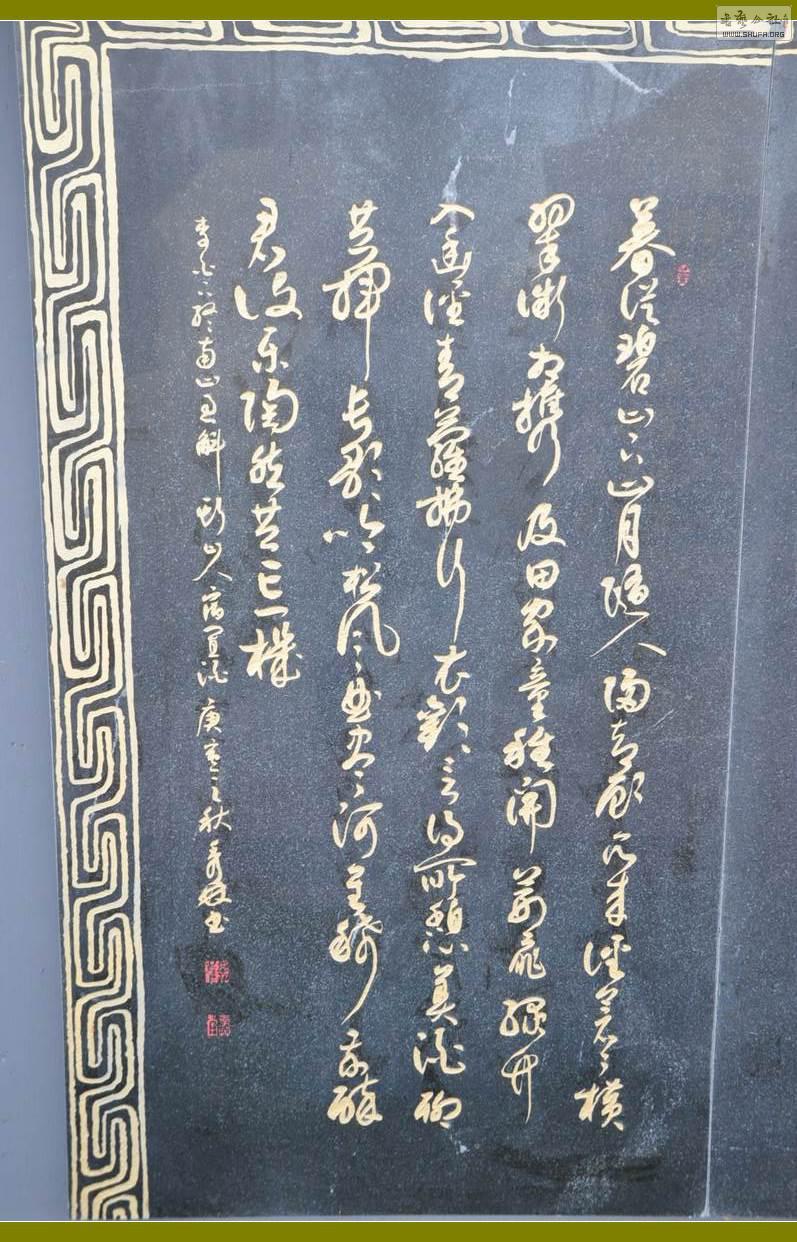 暮從碧山下山月隨人歸却顧所來徑蒼々橫
翠微相攜及田家童稚開荊扉綠竹
入幽徑青蘿拂行衣歡言得所憩美酒聊
共揮長歌吟松風曲盡河星稀我醉
君復樂陶然共忘機
李白下終南山過斛斯山人宿置酒 庚寅之秋 書
WWW.SHUFA.ORG